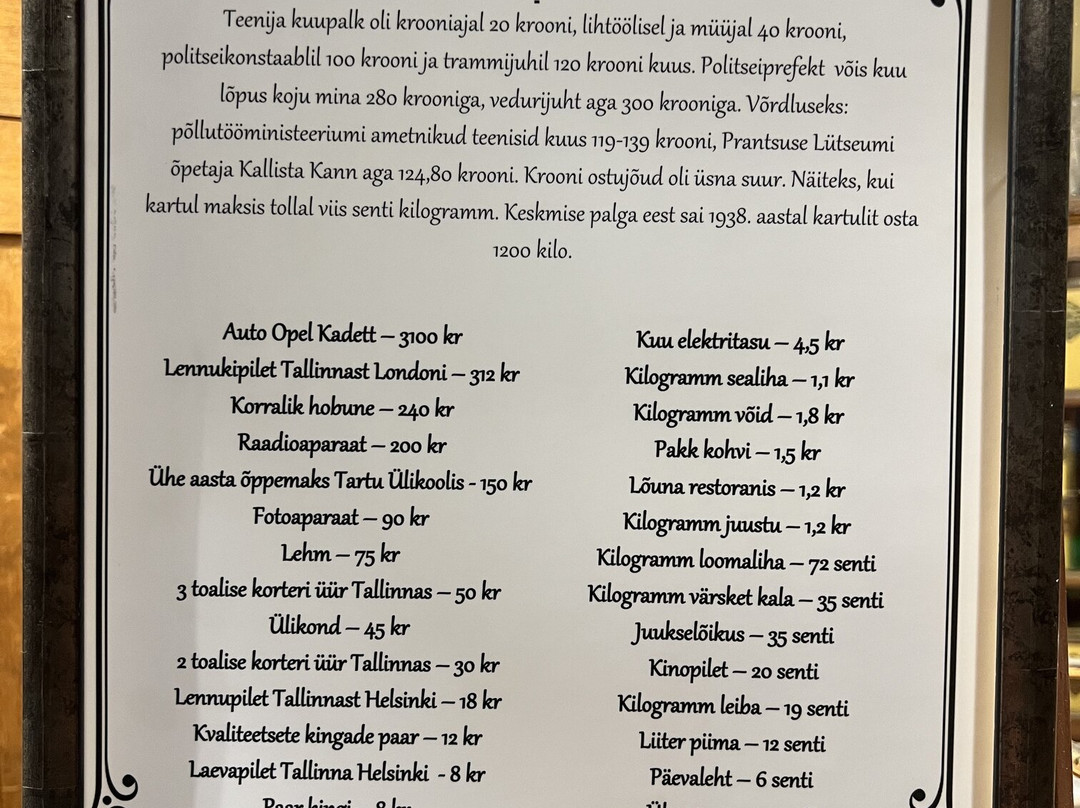 Teenija kuupalk oli krooniajal 20 krooni, lihttöölisel ja müüjal 40 krooni,
politseikonstaablil 100 krooni ja trammijuhil 120 krooni kuus. Politseiprefekt võis kuu
lõpus koju mina 280 krooniga, vedurijuht aga 300 krooniga. Võrdluseks:
põllutööministeeriumi ametnikud teenisid kuus 119-139 krooni, Prantsuse Lütseumi
õpetaja Kallista Kann aga 124,80 krooni. Krooni ostujõud oli üsna suur. Näiteks, kui
kartul maksis tollal viis senti kilogramm. Keskmise palga eest sai 1938. aastal kartulit osta
1200 kilo.
Auto Opel Kadett – 3100 kr
Lennukipilet Tallinnast Londoni – 312 kr
Korralik hobune – 240 kr
Raadioaparaat – 200 kr
Ühe aasta õppemaks Tartu Ülikoolis - 150 kr
Fotoaparaat – 90 kr
Lehm – 75 kr
3 toalise korteri üür Tallinnas – 50 kr
Ülikond – 45 kr
2 toalise korteri üür Tallinnas – 30 kr
Lennupilet Tallinnast Helsinki – 18 kr
Kvaliteetsete kingade paar – 12 kr
Laevapilet Tallinna Helsinki - 8 kr
Kuu elektritasu – 4,5 kr
Kilogramm sealiha – 1,1 kr
Kilogramm võid – 1,8 kr
Pakk kohvi – 1,5 kr
Lõuna restoranis – 1,2 kr
Kilogramm juustu – 1,2 kr
Kilogramm loomaliha – 72 senti
Kilogramm värsket kala – 35 senti
Juukselõikus – 35 senti
Kinopilet – 20 senti
Kilogramm leiba – 19 senti
Liiter piima – 12 senti
Päevaleht – 6 senti